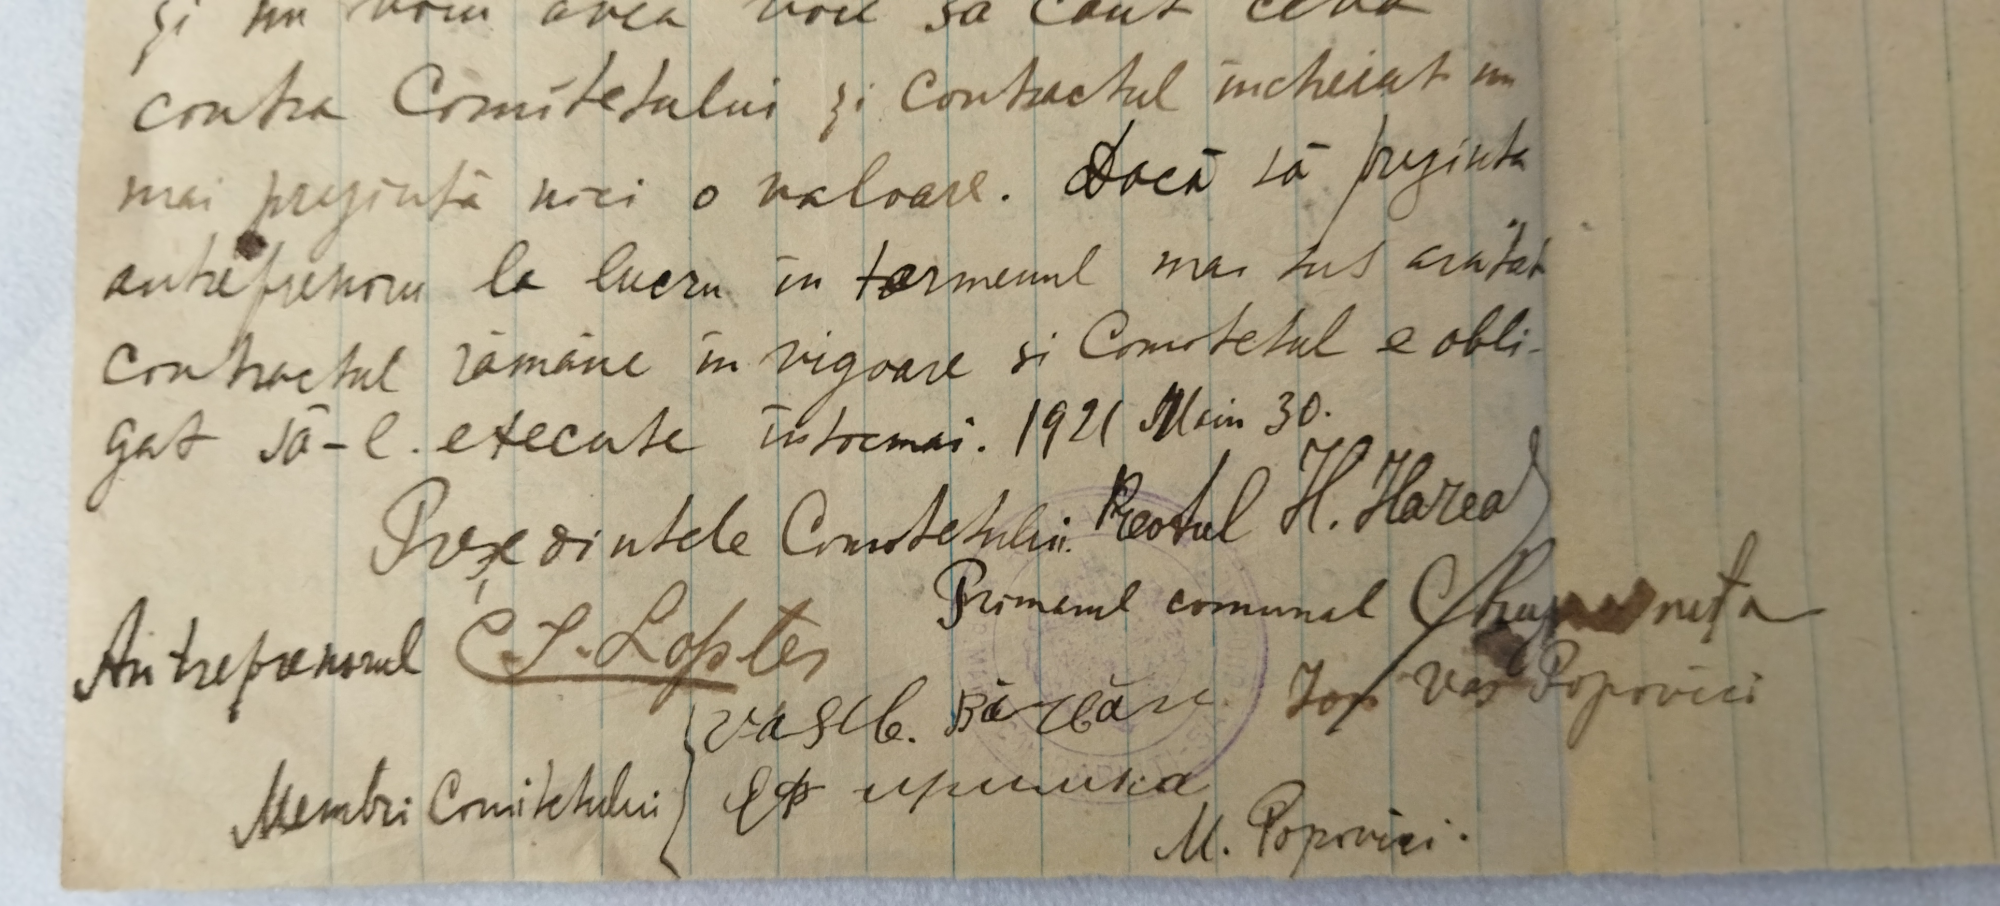 și nu vom avea voie să caut ceva
contra Comitetului și Contractul incheiat nu
mai prezintă nici o valoare. Dacă să prezinta
antreprenoru la lucru in termenul mai sus arătat
Contractul rămâne in vigoare si Comitetul e obli-
gat să-l execute intocmai. 1921 Main 30.
Președintele Comitetului. Preotul H. Harea
Primarul comunal
Antreprenorul C. S. Lopter
Vas Popovici
Vasile.
Membri Comitetului
M. Popovici.